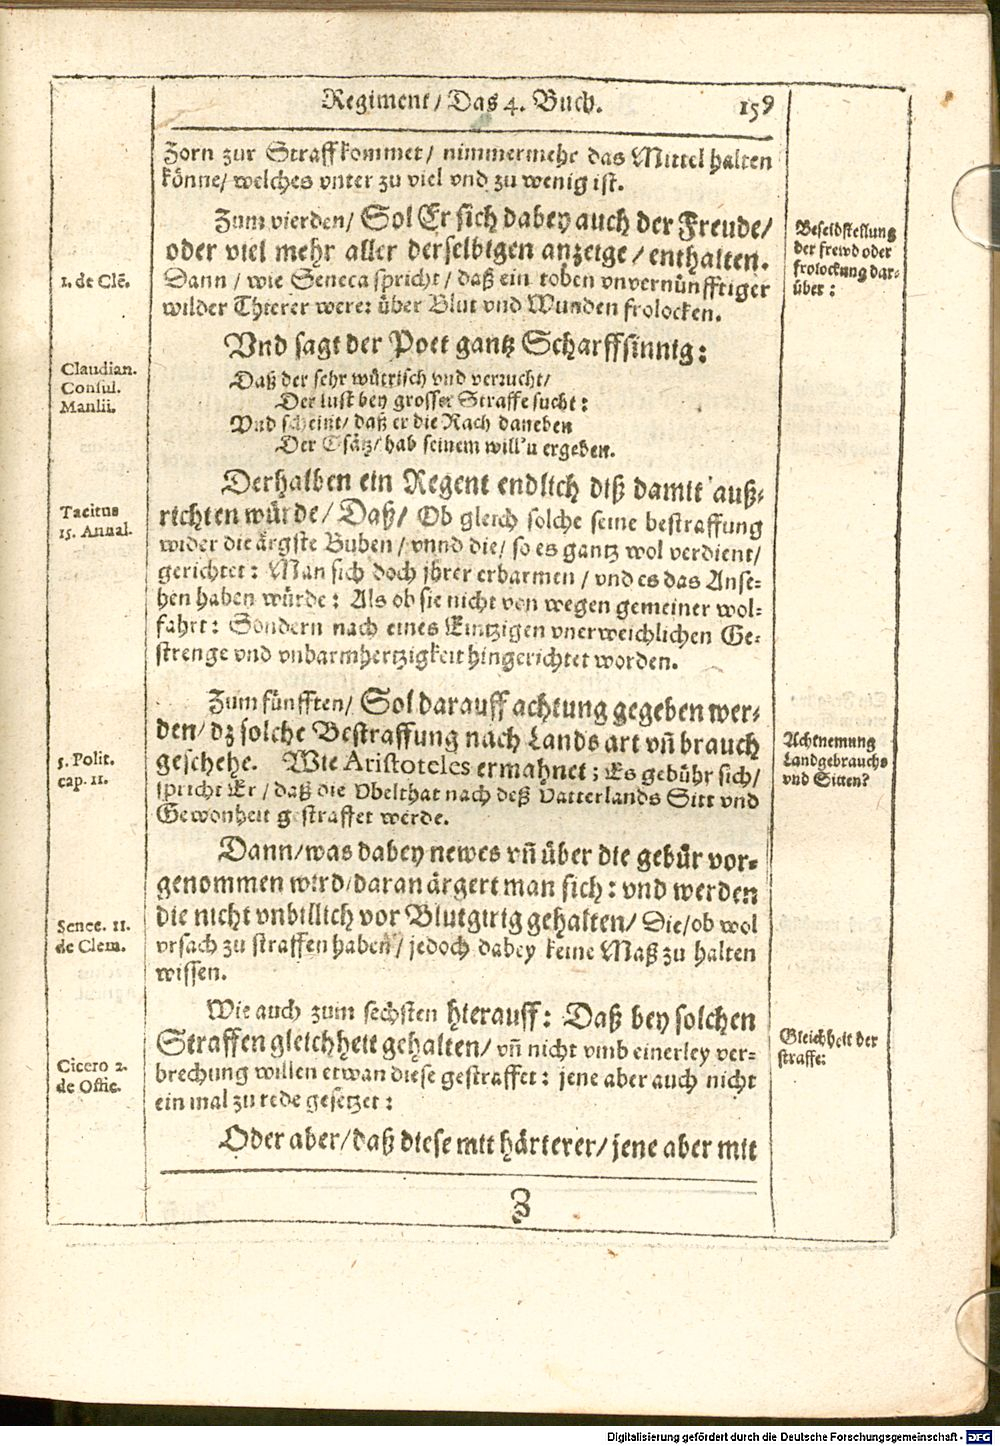 Regiment/ Das 4. Buch. 159
Zorn zur Straff kommet/ nimmermehr das Mittel halten
könne/ welches vnter zu viel vnd zu wenig ist.
Zum vierden/ Sol Er sich dabey auch der Freude/
oder viel mehr aller derselbigen anzeige/ enthalten.
Dann/ wie Seneca spricht/ daß ein toben vnvernünfftiger
wilder Thierer were: über Blut vnd Wunden frolocken.
Vnd sagt der Poet gantz Scharffsinnig:
Daß der sehr wütrisch vnd verrucht/
Der lust bey grosser Straffe sucht:
Vnd scheint/ daß er die Rach daneben
Der Gsätz/ hab seinem will'n ergeben.
Derhalben ein Regent endlich diß damit auß-
richten würde/ Daß/ Ob gleich solche seine bestraffung
wider die ärgste Buben/ vnnd die/ so es gantz wol verdient/
gerichtet: Man sich doch jhrer erbarmen/ vnd es das Anse-
hen haben würde: Als ob sie nicht von wegen gemeiner wol-
fahrt: Sondern nach eines Eintzigen vnerweichlichen Ge-
strenge vnd vnbarmhertzigkeit hingerichtet worden.
Zum fünfften/ Sol darauff achtung gegeben wer-
den/ dz solche Bestraffung nach Lands art vñ brauch
geschehe. Wie Aristoteles ermahnet; Es gebühr sich/
spricht Er/ daß die Vbelthat nach deß Vatterlands Sitt vnd
Gewonheit gestraffet werde.
Dann/ was dabey newes vñ über die gebür vor-
genommen wird/ daran ärgert man sich: vnd werden
die nicht vnbillich vor Blutgirig gehalten/ Die/ ob wol
vrsach zu straffen haben/ jedoch dabey keine Maß zu halten
wissen.
Wie auch zum sechsten hierauff: Daß bey solchen
Straffen gleichheit gehalten/ vñ nicht vmb einerley ver-
brechung willen etwan diese gestraffet: jene aber auch nicht
ein mal zu rede gesetzet:
Oder aber/ daß diese mit härterer/ jene aber mit
Z
1. de Clē.
Claudian.
Consul.
Manlii.
Tacitus
15. Annal.
5. Polit.
cap. 11.
Senec. 11.
de Clem.
Cicero 2.
de Offic.
der frewd oder
frolockung dar-
über:
Achtnemung
Landgebrauchs
vnd Sitten?
Gleichheit der
straffe:
Digitalisierung gefördert durch die Deutsche Forschungsgemeinschaft - DFG